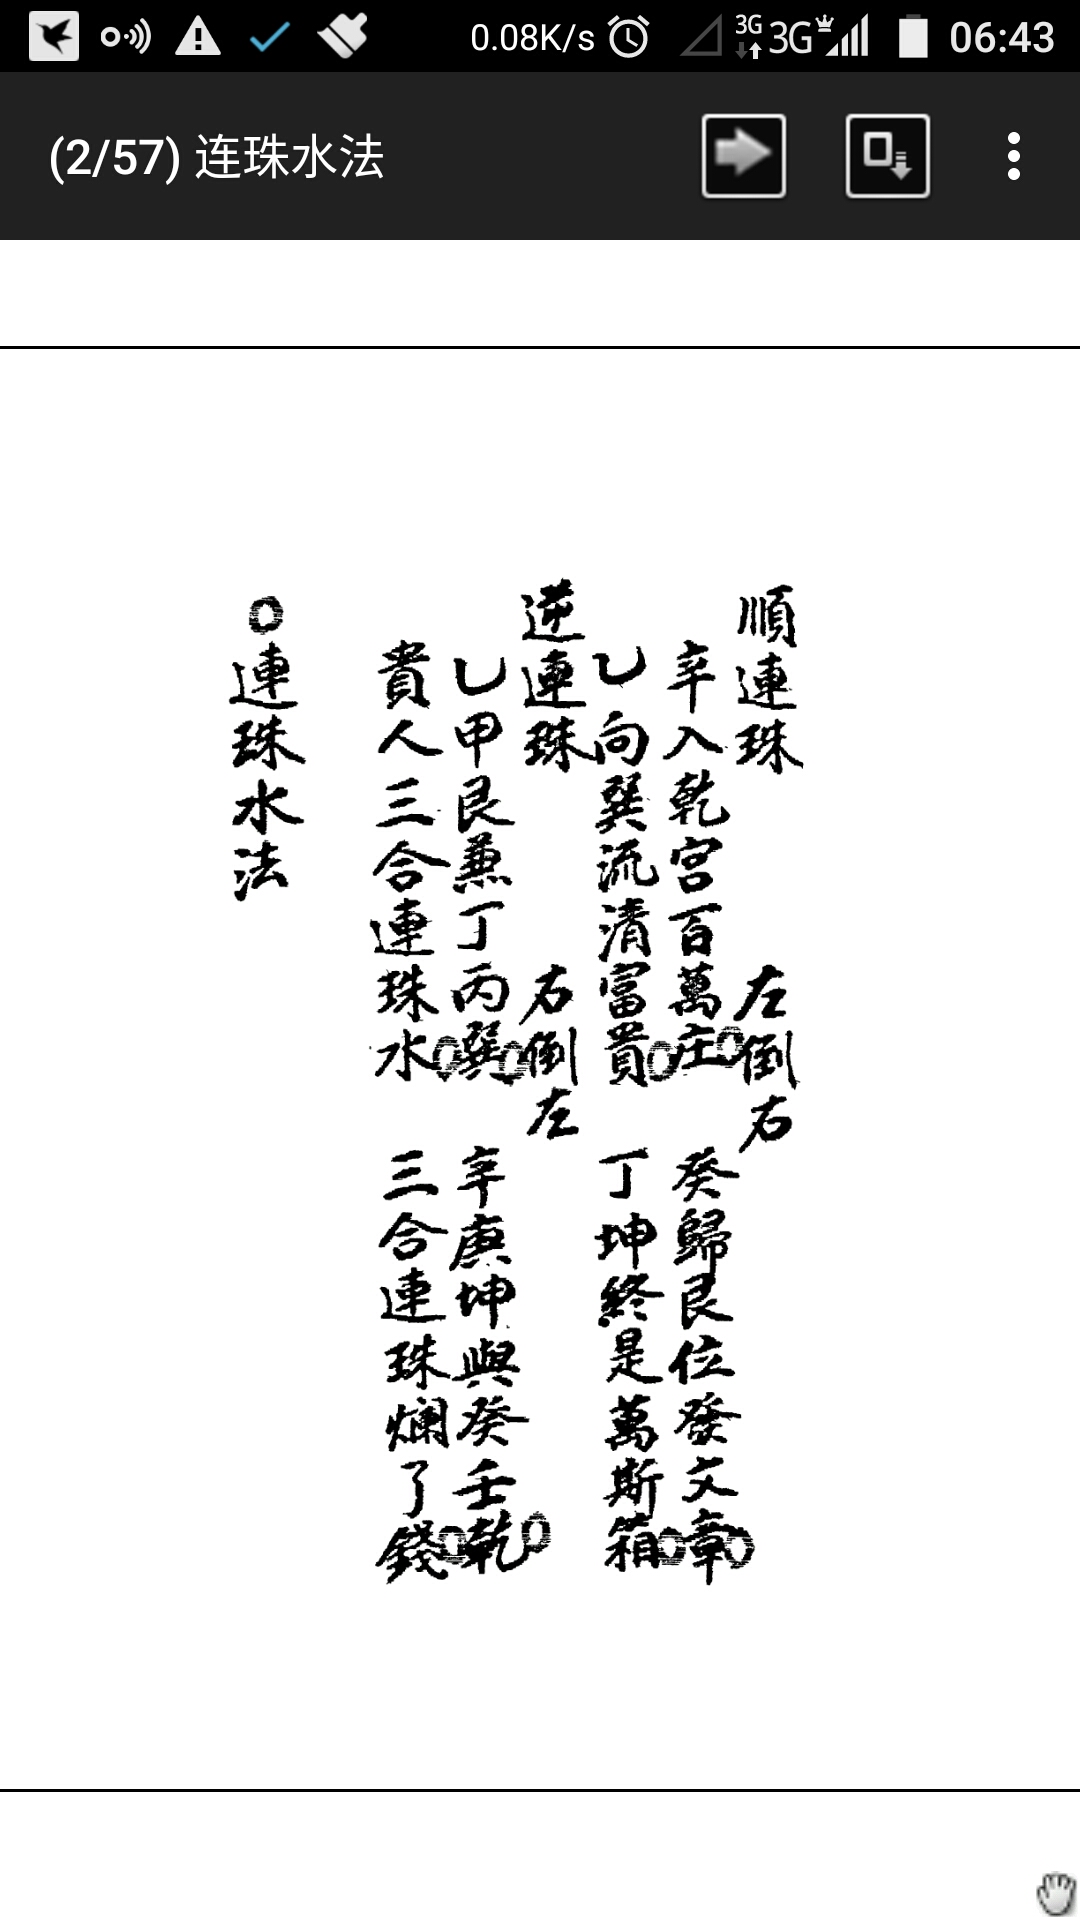 0.08K/s 3G 3G 06:43
(2/57) 连珠水法
順連珠 左倒右
辛入乾宮百萬庄 癸歸艮位發文章
乙向巽流清富貴 丁坤終是萬斯箱
逆連珠 右倒左
乙甲艮兼丁丙巽 辛庚坤與癸壬乾
貴人三合連珠水 三合連珠爛了錢
○連珠水法